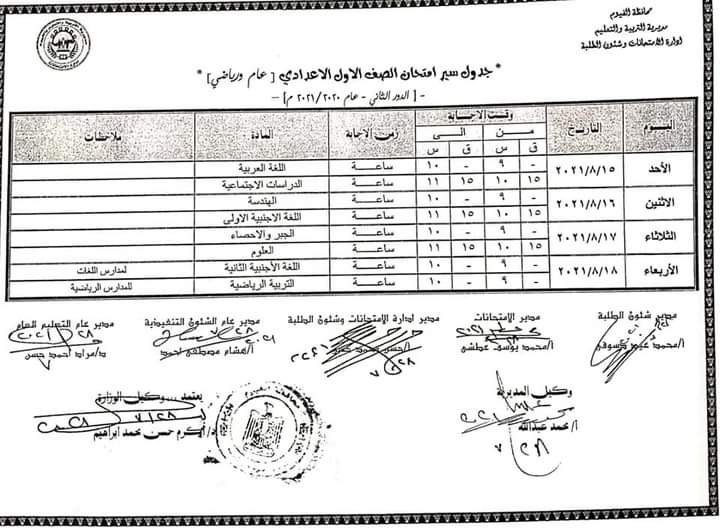 محافظة الفيوم
مديرية التربية والتعليم
إدارة الامتحانات وشئون الطلبة
* جدول سير امتحان الصف الاول الاعدادي [ عام ورياضي ] *
- [ الدور الثاني - عام ٢٠٢١/٢٠٢٠ م ] -
اليوم التاريخ وقت الاجابة زمن الاجابة المادة ملاحظات
من الى
ق س ق س
الأحد ٢٠٢١/٨/١٥ - ٩ - ١٠ ساعة اللغة العربية
١٥ ١٠ ١٥ ١١ ساعة الدراسات الاجتماعية
الاثنين ٢٠٢١/٨/١٦ - ٩ - ١٠ ساعة الهندسة
١٥ ١٠ ١٥ ١١ ساعة اللغة الاجنبية الاولى
الثلاثاء ٢٠٢١/٨/١٧ - ٩ - ١٠ ساعة الجبر والاحصاء
١٥ ١٠ ١٥ ١١ ساعة العلوم
الأربعاء ٢٠٢١/٨/١٨ - ٩ - ١٠ ساعة اللغة الأجنبية الثانية لمدارس اللغات
- ٩ - ١٠ ساعة التربية الرياضية للمدارس الرياضية
مدير شئون الطلبة مدير الامتحانات مدير ادارة الامتحانات وشئون الطلبة مدير عام الشئون التنفيذية مدير عام التعليم العام
أ/محمد عيد أ/محمد يوسف عطشى أ/هشام مصطفى احمد د/مراد أحمد حسن
وكيل المديرية
أ/ محمد عبدالله
يعتمد ،،، وكيل الوزارة
د/ أكرم حسن محمد ابراهيم